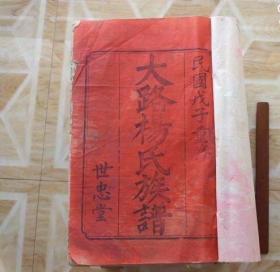 民國戊子
大路楊氏族譜
世忠堂